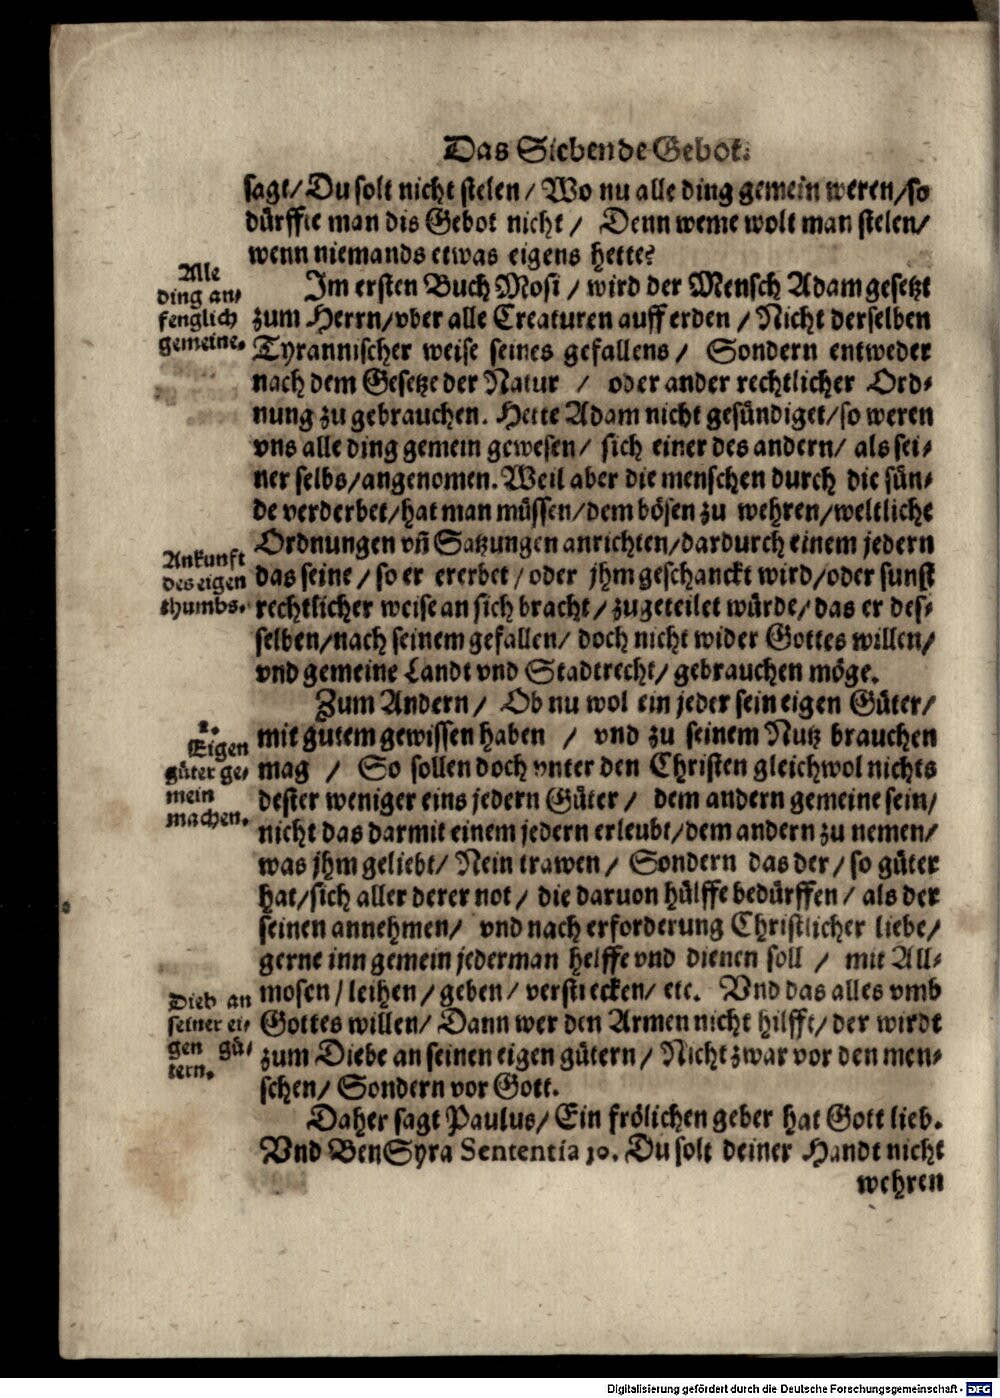 Das Siebende Gebot.
sagt/ Du solt nicht stelen/ Wo nu alle ding gemein weren/ so
dürffte man dis Gebot nicht/ Denn weme wolt man stelen/
wenn niemands etwas eigens hette?
Alle
ding an-
fenglich
gemeine.
Im ersten Buch Mosi/ wird der Mensch Adam gesetzt
zum Herrn/ vber alle Creaturen auff erden/ Nicht derselben
Tyrannischer weise seines gefallens/ Sondern entweder
nach dem Gesetze der Natur/ oder ander rechtlicher Ord-
nung zu gebrauchen. Hette Adam nicht gesündiget/ so weren
vns alle ding gemein gewesen/ sich einer des andern/ als sei-
ner selbs/ angenomen. Weil aber die menschen durch die sün-
de verderbet/ hat man müssen/ dem bösen zu wehren/ weltliche
Ordnungen vñ Satzungen anrichten/ dardurch einem jedern
Ankunft
des eigen
thumbs.
das seine/ so er ererbet/ oder jhm geschanckt wird/ oder sunst
rechtlicher weise an sich bracht/ zugeteilet würde/ das er des-
selben/ nach seinem gefallen/ doch nicht wider Gottes willen/
vnd gemeine Landt vnd Stadtrecht/ gebrauchen möge.
Zum Andern/ Ob nu wol ein jeder sein eigen Güter/
2.
Eigen
güter ge-
mein
machen.
mit gutem gewissen haben/ vnd zu seinem Nutz brauchen
mag/ So sollen doch vnter den Christen gleichwol nichts
dester weniger eins jedern Güter/ dem andern gemeine sein/
nicht das darmit einem jedern erleubt/ dem andern zu nemen/
was jhm geliebt/ Nein trawen/ Sondern das der/ so güter
hat/ sich aller derer not/ die daruon hülffe bedürffen/ als der
seinen annehmen/ vnd nach erforderung Christlicher liebe/
gerne inn gemein jederman helffe vnd dienen soll/ mit All-
Dieb an
seiner ei-
gen gü-
tern.
mosen/ leihen/ geben/ verstrecken/ etc. Vnd das alles vmb
Gottes willen/ Dann wer den Armen nicht hilfft/ der wirdt
zum Diebe an seinen eigen gütern/ Nicht zwar vor den men-
schen/ Sondern vor Gott.
Daher sagt Paulus/ Ein frölichen geber hat Gott lieb.
Vnd BenSyra Sententia 10. Du solt deiner Handt nicht
wehren
Digitalisierung gefördert durch die Deutsche Forschungsgemeinschaft - DFG